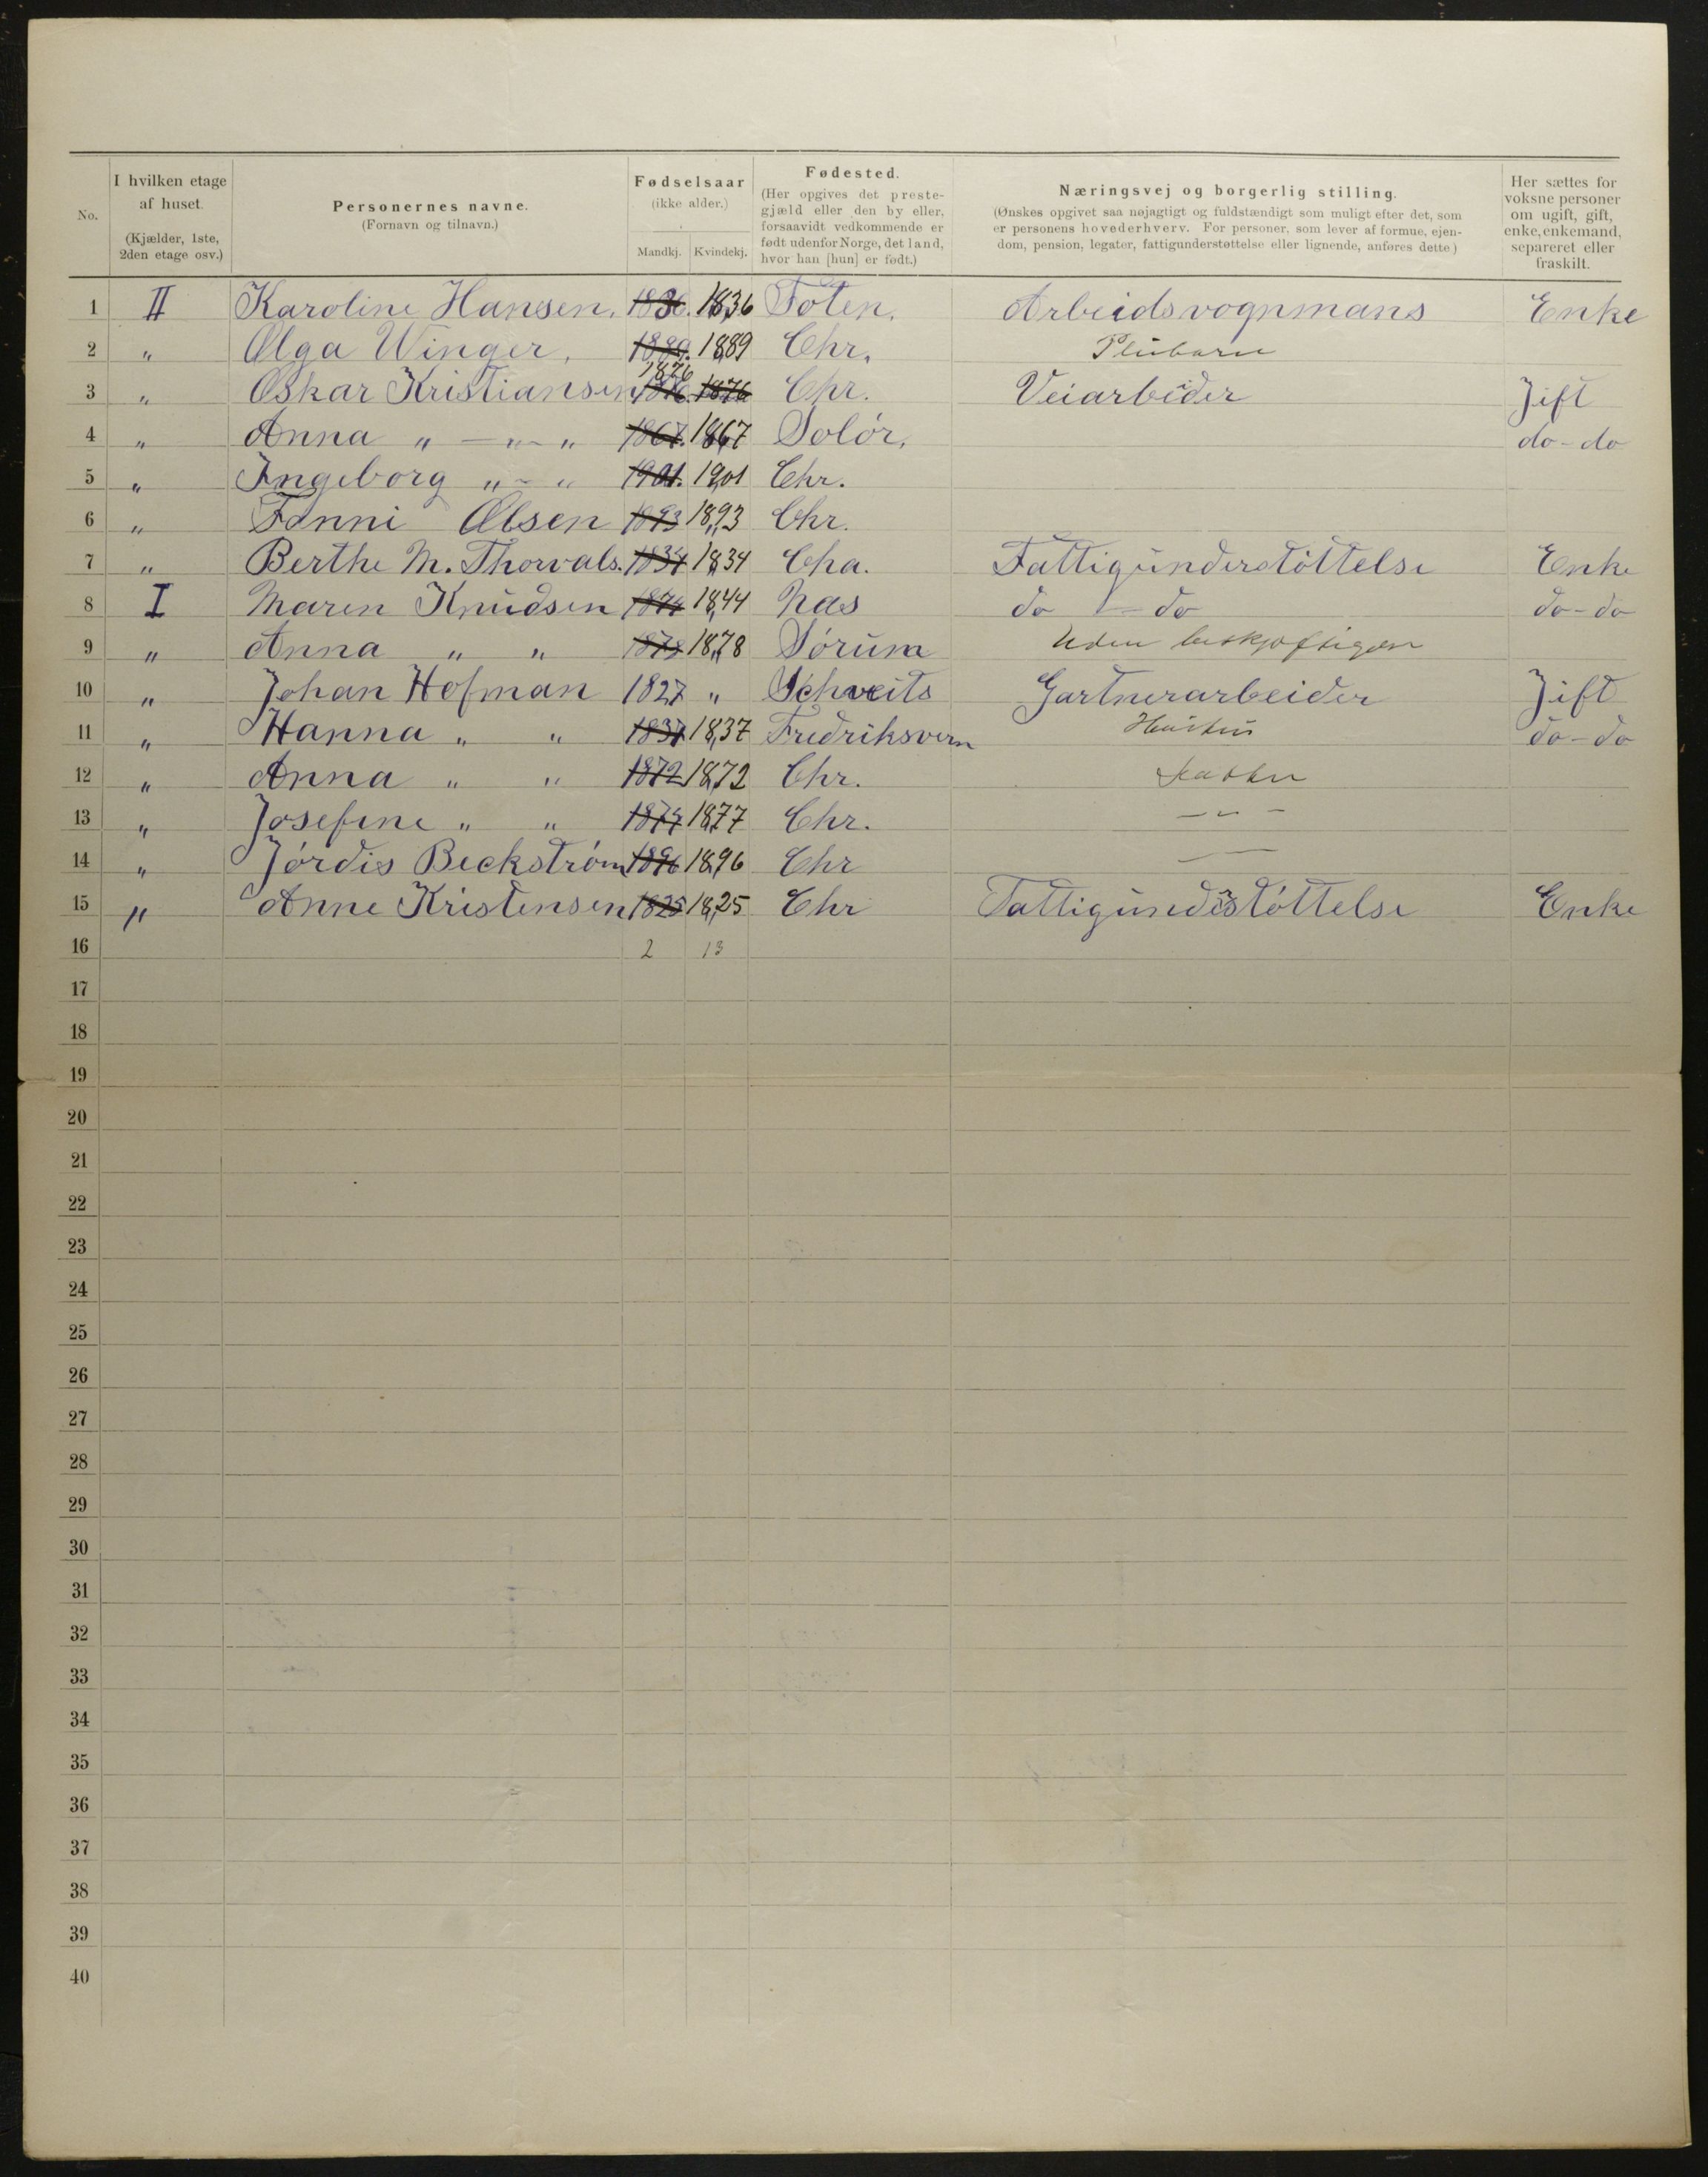 No. | I hvilken etage af huset. (Kjælder, 1ste, 2den etage osv.) | Personernes navne. (Fornavn og tilnavn.) | Fødselsaar (ikke alder.) Mandkj. Kvindekj. | Fødested. (Her opgives det prestegjæld eller den by eller, forsaavidt vedkommende er født udenfor Norge, det land, hvor han [hun] er født.) | Næringsvej og borgerlig stilling. (Ønskes opgivet saa nøjagtigt og fuldstændigt som muligt efter det, som er personens hovederhverv. For personer, som lever af formue, ejendom, pension, legater, fattigunderstøttelse eller lignende, anføres dette.) | Her sættes for voksne personer om ugift, gift, enke, enkemand, separeret eller fraskilt.
1 II Karoline Hansen. 1836. 1836 Toten. Arbeidsvognmans Enke
2 " Olga Winger. 1889. 1889 Chr. Pleiebarn
3 " Oskar Kristiansen 1876 1876. 1876 Chr. Veiarbeider Jift
4 " Anna " — " — " 1867. 1867 Solör. do - do
5 " Ingeborg " - " 1901. 1901 Chr.
6 " Fanni Olsen 1893 1893 Chr.
7 " Berthe M. Thorvals. 1834 1834 Cha. Fattigünderstöttelse Enke
8 I Maren Knudsen 1844 Nas do — do do - do
9 " Anna " " 1878 1878 Sörüm Uden
10 " Johan Hofman 1827 " Schveits Gartnerarbeider Jift
11 " Hanna " " 1837 1837 Fredriksvern Hüstrü do - do
12 " Anna " " 1872 1872 Chr. Datter
13 " Josefine " " 1877 1877 Chr. — " —
14 " Jördis Beckström 1896 1896 Chr —
15 " Anne Kristensen 1825 1825 Chr Fattigünderstöttelse Enke
16 2 13
17
18
19
20
21
22
23
24
25
26
27
28
29
30
31
32
33
34
35
36
37
38
39
40